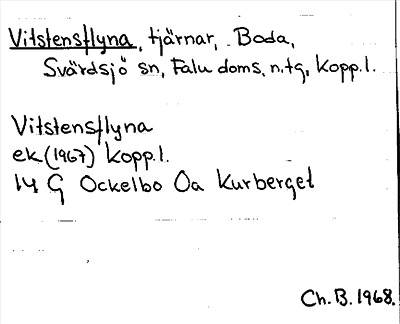 Vitstensflyna, tjärnar, Boda,
Svärdsjö sn, Falu doms. n. tg, Kopp. l.
Vitstensflyna
ek (1967) Kopp. l.
14 G Ockelbo Oa Kurberget
Ch. B. 1968.